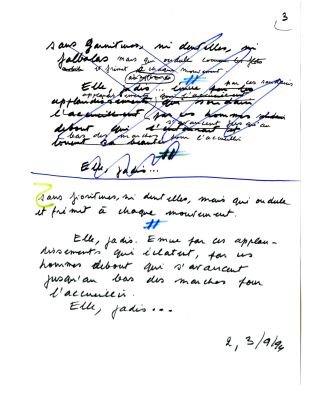 3
sans garnitures, ni dentelles, ni
falbalas mais qui ondule comme les flots
et frémit à chaque mouvement
Elle, jadis... émue par les par ces souvenirs
applaudissements qui s'accueillent
applaudissements, que
l'accueillent, par ces hommes
debout qui s'avancent jusqu'au
bas des marches pour l'accueillir
Elle, jadis...
sans fioritures, ni dentelles, mais qui ondule
et frémit à chaque mouvement.
Elle, jadis. Emue par ces applau-
dissements qui éclatent, par ces
hommes debout qui s'avancent
jusqu'au bas des marches pour
l'accueillir.
Elle, jadis...
2, 3/9/94